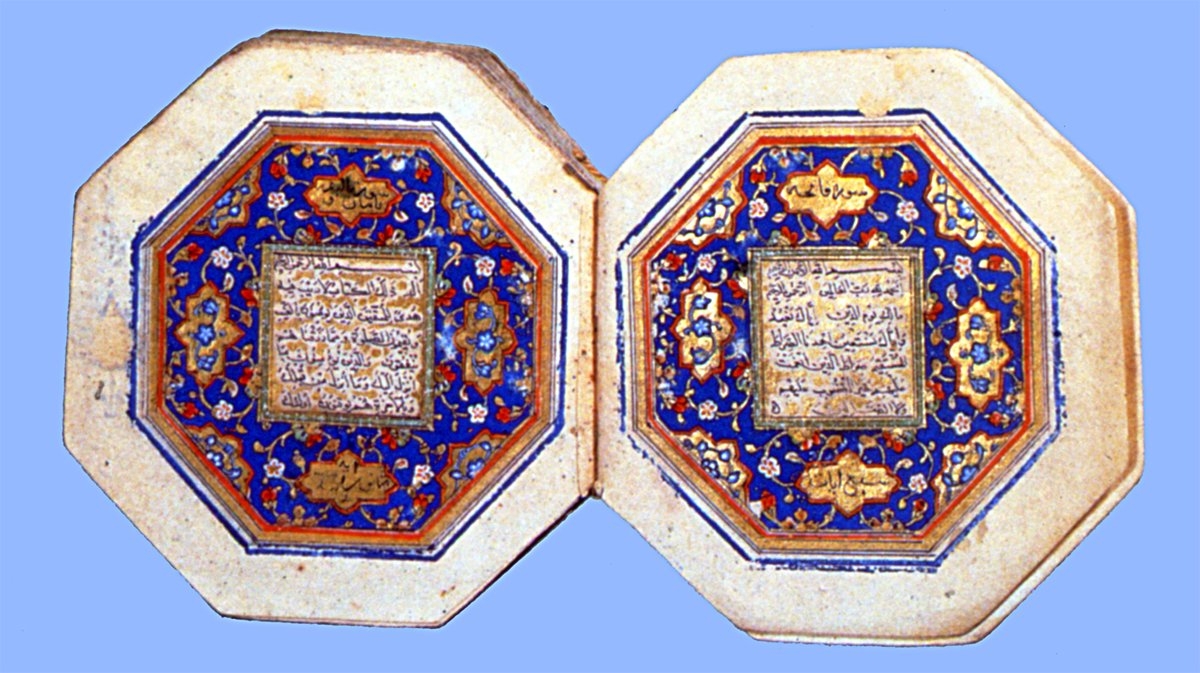 سورة فاتحه
بسم الله الرحمن الرحيم
الحمد لله رب العالمين الرحمن الرحيم
مالك يوم الدين اياك نعبد
واياك نستعين اهدنا الصراط
المستقيم صراط الذين انعمت
عليهم غير المغضوب عليهم
ولا الضالين
سبع ايات
سورة
مائتان و
بسم الله الرحمن الرحيم
الم ذلك الكتاب لا ريب فيه
هدى للمتقين الذين يؤمنون بالغيب
ويقيمون الصلوة ومما رزقناهم
ينفقون والذين يؤمنون بما
انزل اليك وما انزل من قبلك
وبالاخرة هم يوقنون اولئك
اية